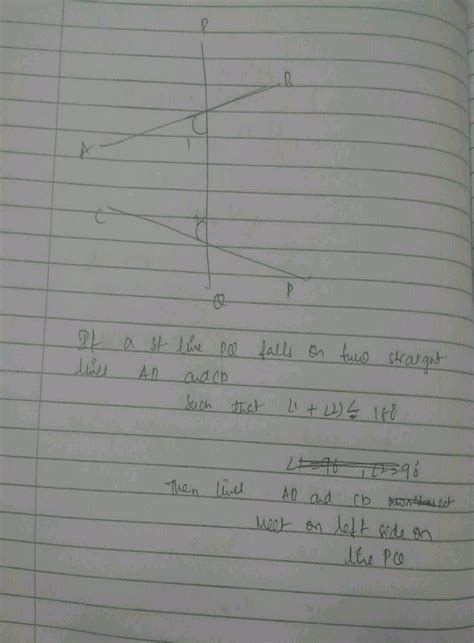 P
B
1
A
C
2
Q
P
If a st line PQ falls on two straight
lines AB and CD
Such that ∠1 + ∠2 ≤ 180
∠1=90 , ∠2=90
Then lines AB and CD meet
Meet on left side on
line PQ